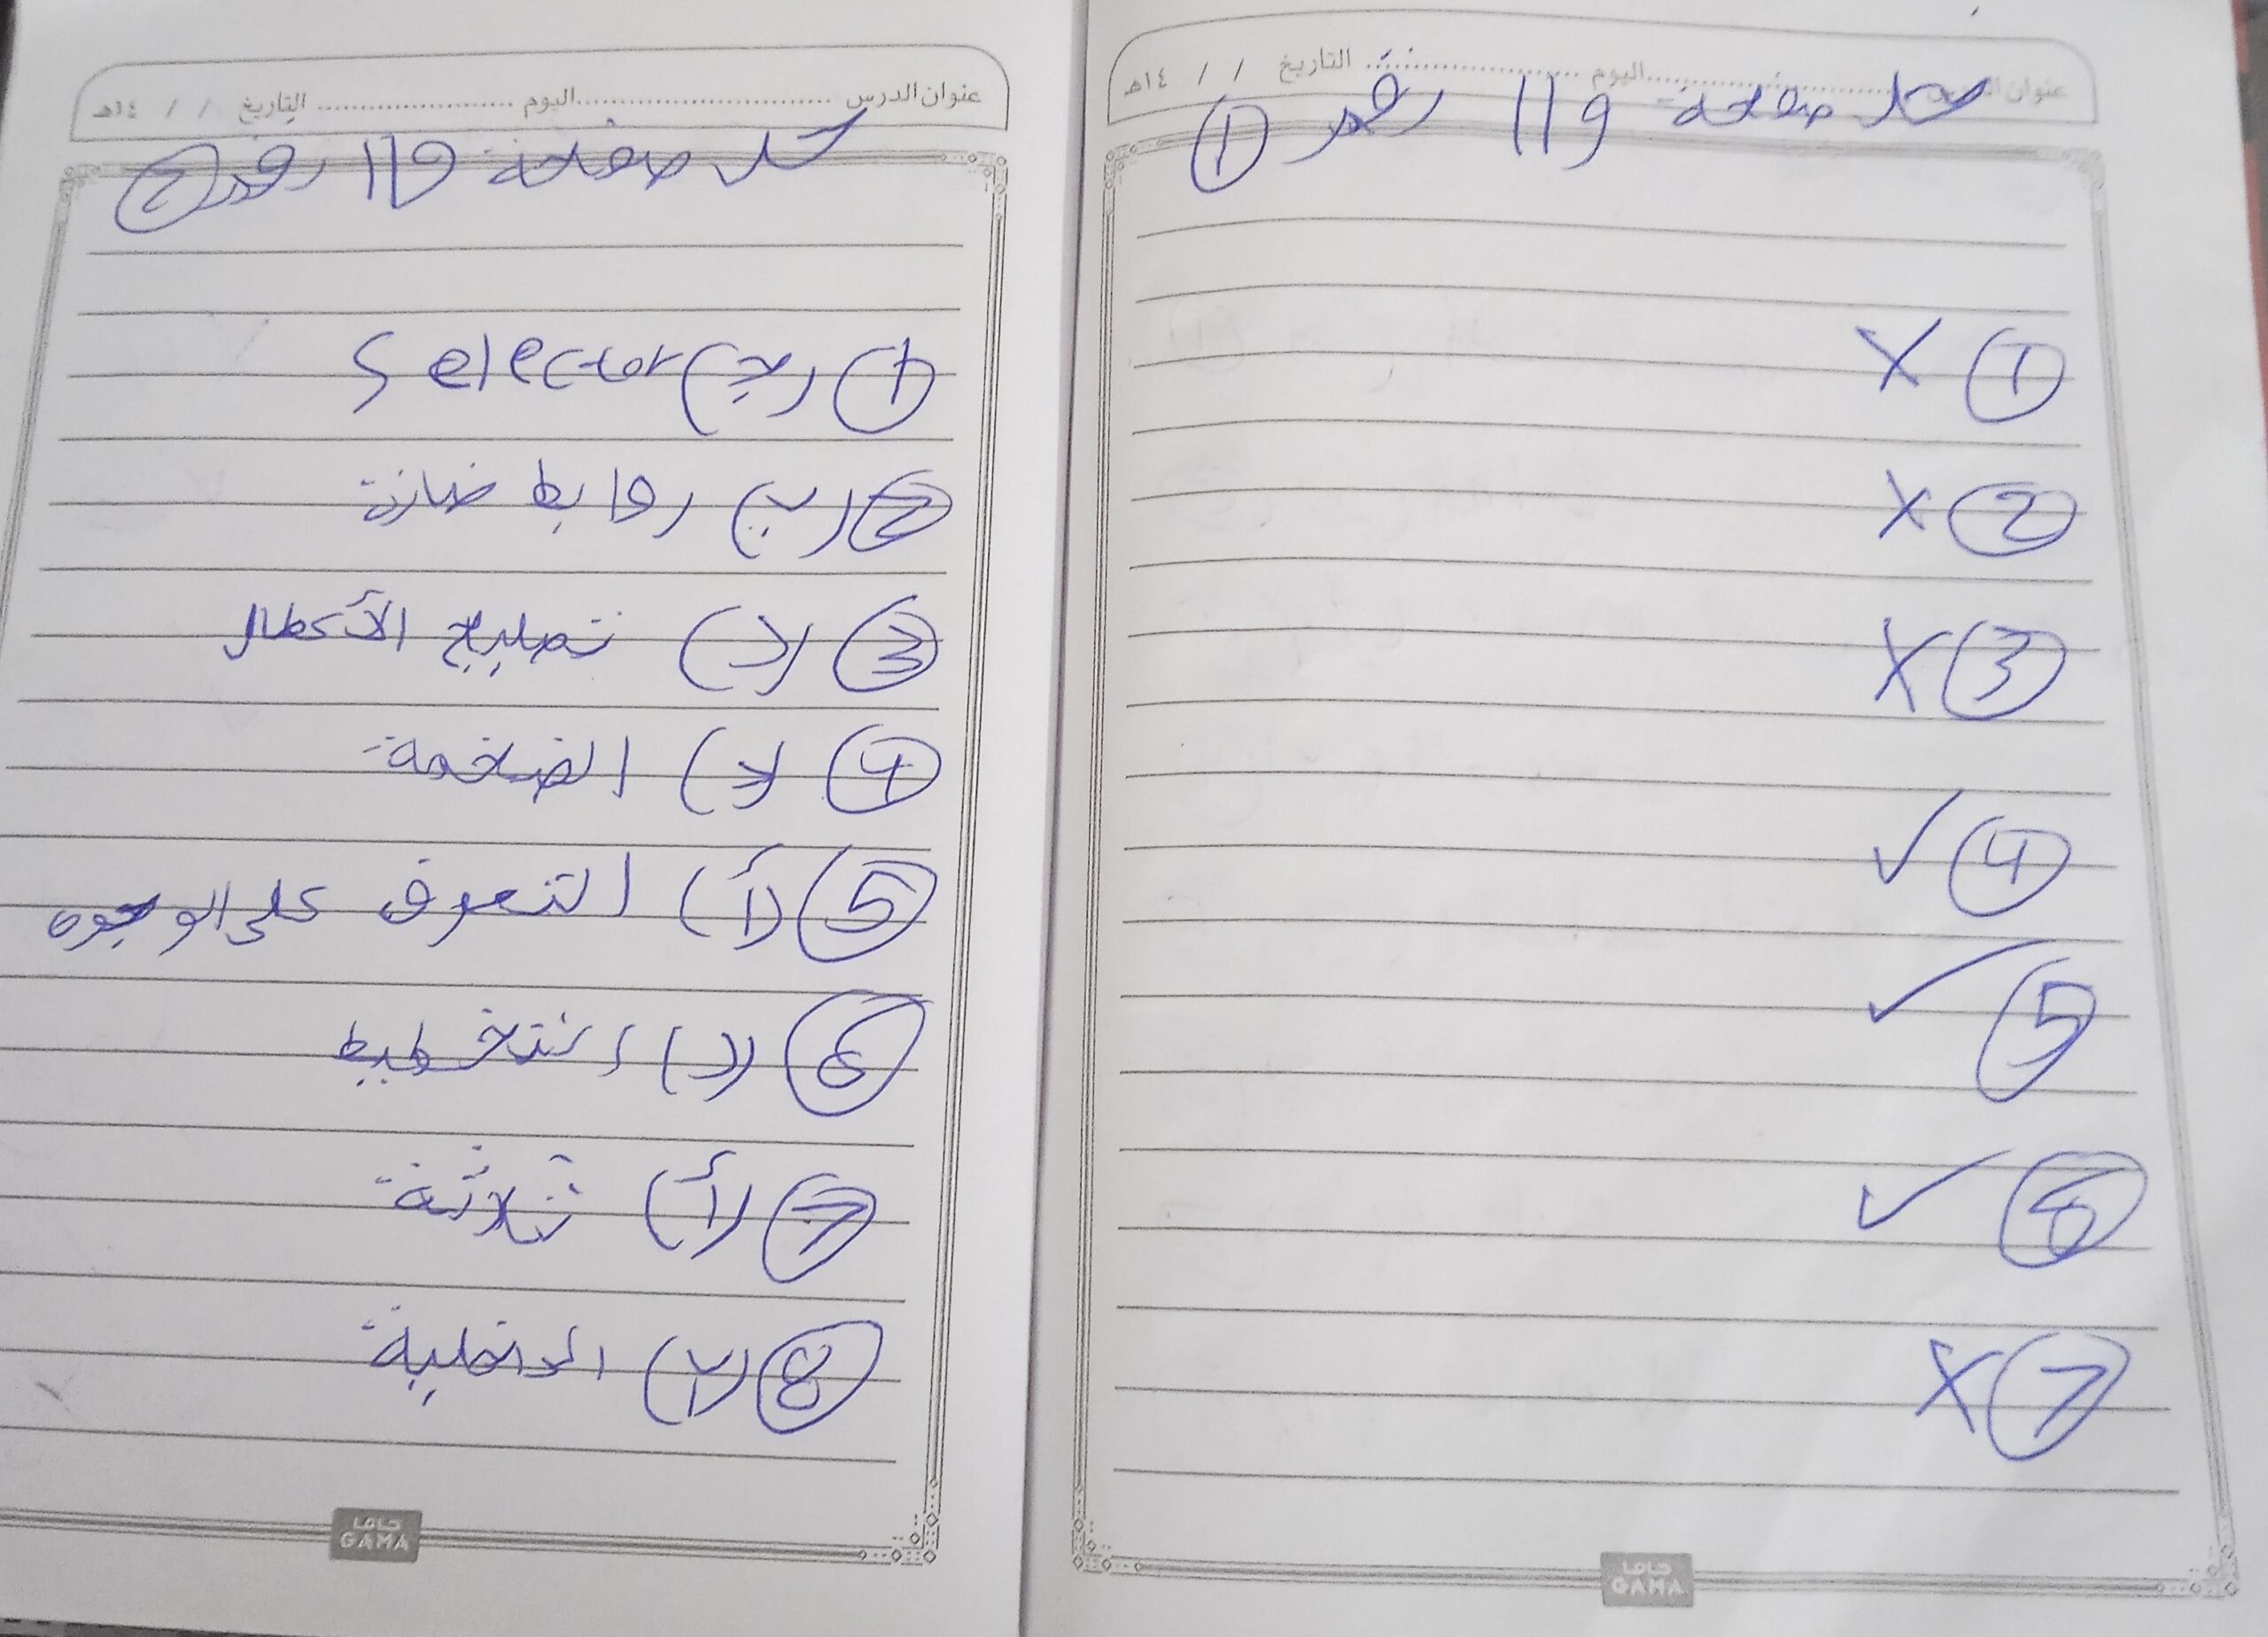 عنوان الدرس ........ اليوم ........ التاريخ / / ١٤هـ
حل صفحة 119 رقم ①
① ✗
② ✗
③ ✗
④ ✓
⑤ ✓
⑥ ✓
⑦ ✗
جاما
GAMA
عنوان الدرس ........ اليوم ........ التاريخ / / ١٤هـ
حل صفحة 119 رقم ②
① (ج) Selector
② (ب) روابط ضارة
③ (د) تصليح الأعطال
④ الضخمة
⑤ (أ) التعرف على الوجوه
⑥ (د) التخطيط
⑦ (أ) ثلاثة
⑧ الداخلية
جاما
GAMA